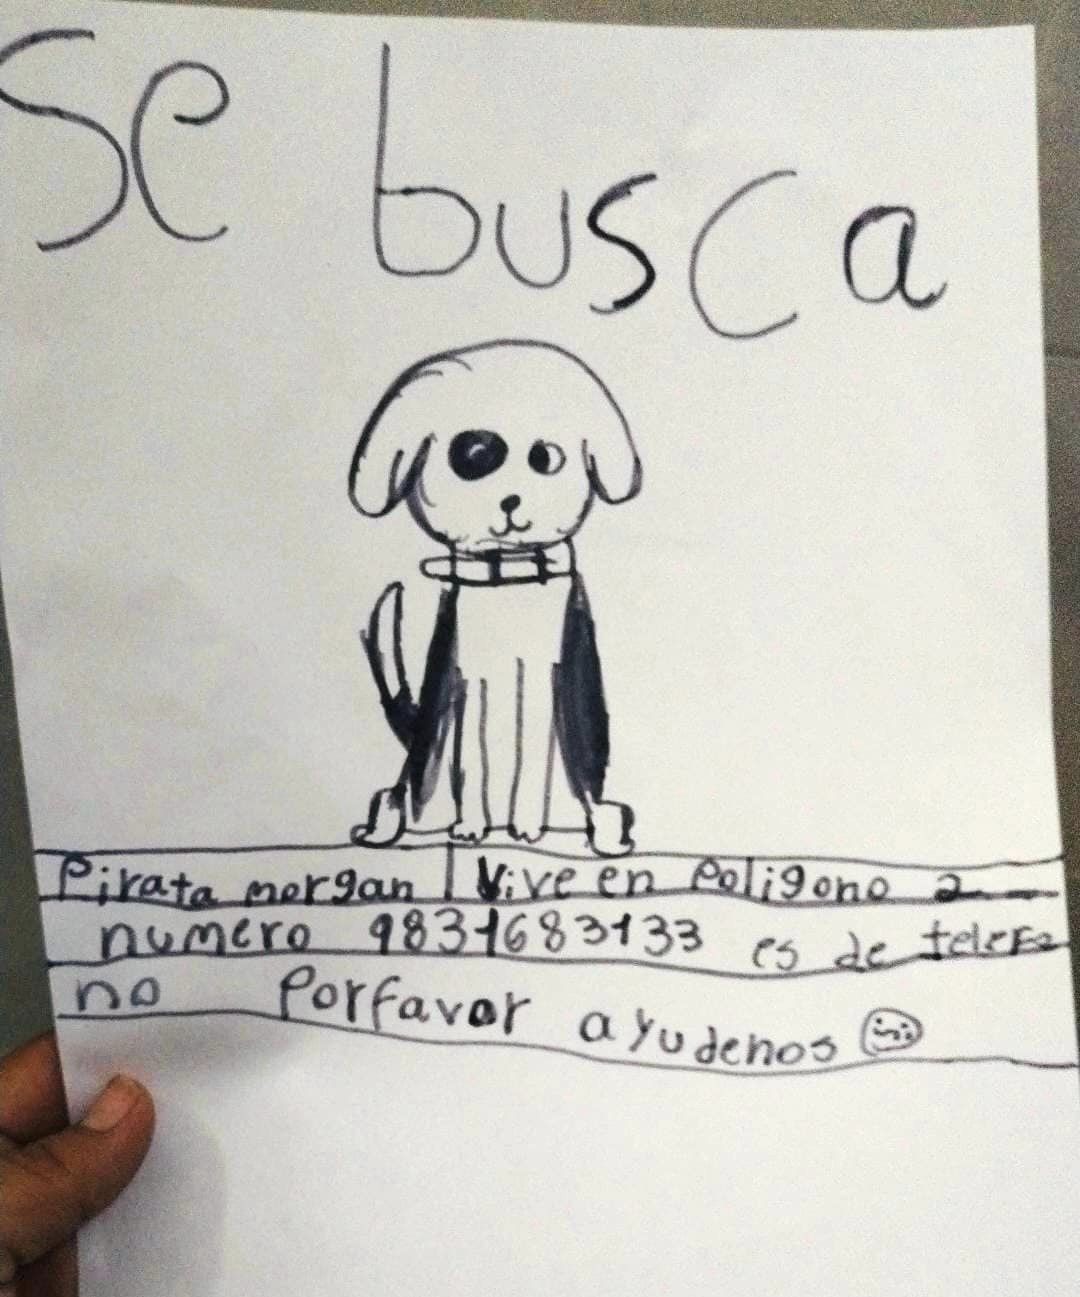 Se busca
Pirata morgan | Vive en Poligono 2
numero 9831683133 es de telefo
no Porfavor ayudenos